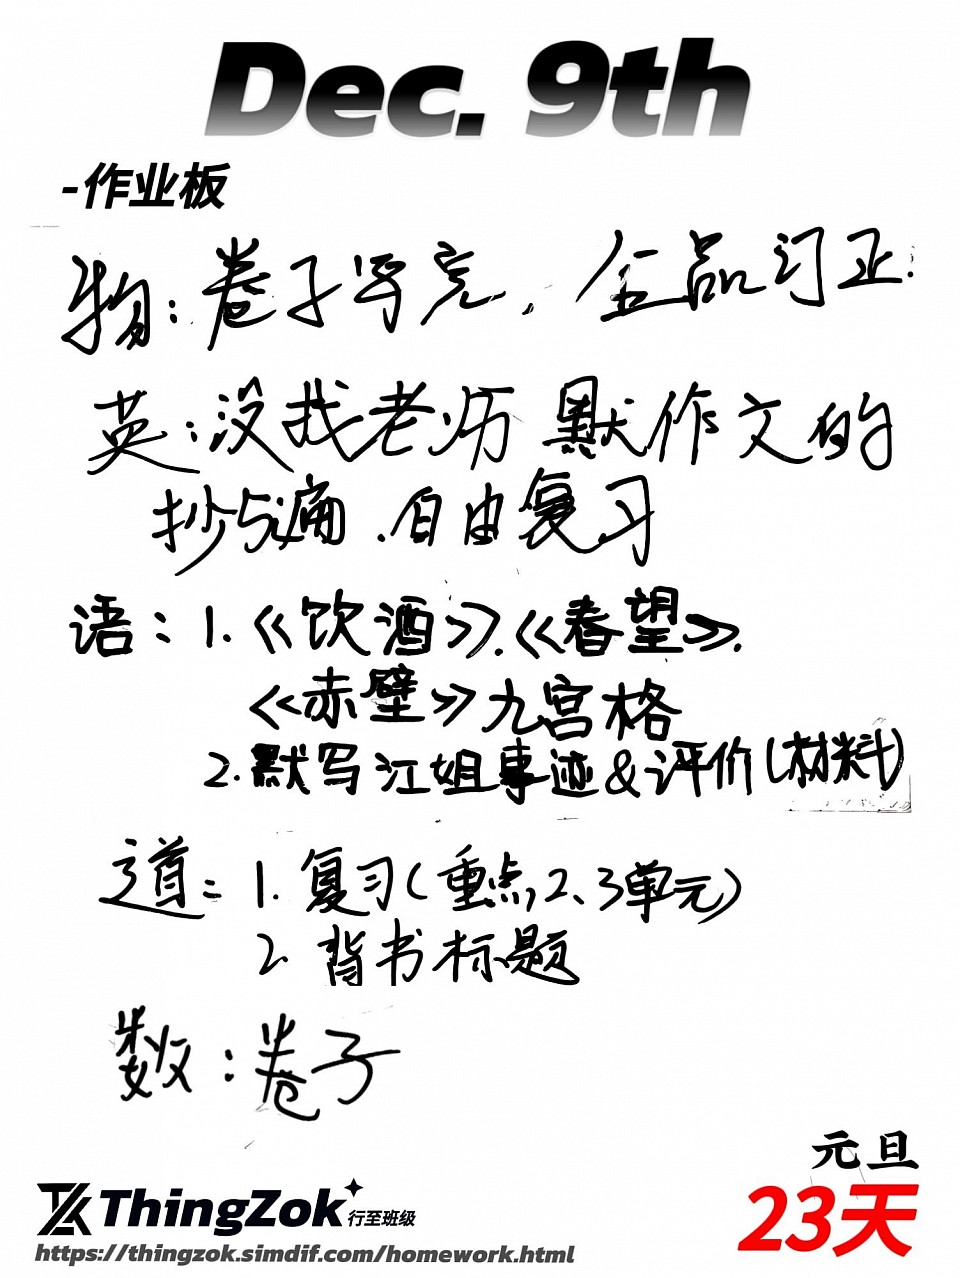 Dec. 9th
-作业板
物:卷子写完.全品订正.
英:没找老师默作文的
抄5遍.自由复习
语:1.《饮酒》.《春望》.
《赤壁》九宫格
2.默写江姐事迹&评价(材料)
道:1.复习(重点2、3单元)
2.背书标题
数:卷子
元旦
23天
ThingZok 行至班级
https://thingzok.simdif.com/homework.html